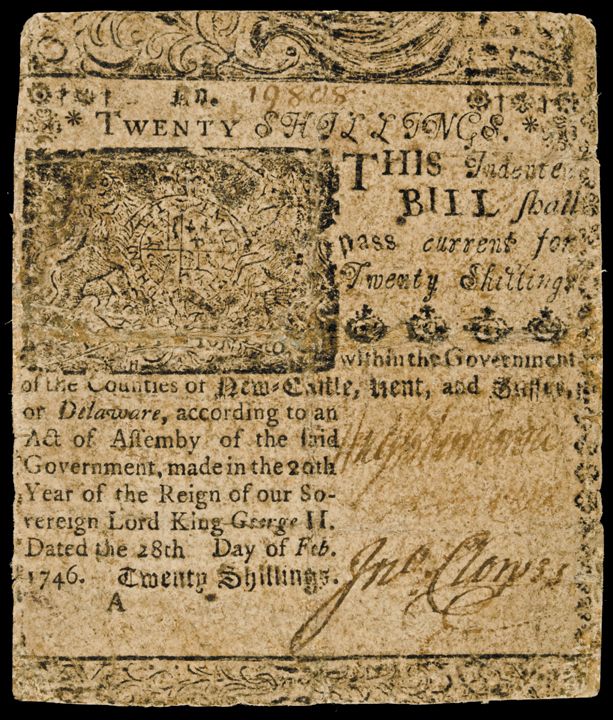 No. 19808
* TWENTY SHILLINGS. *
THIS Indented
BILL shall
pass current for
Twenty Shillings
within the Government
of the Counties of New-Castle, Kent, and Sussex,
on Delaware, according to an
Act of Assemby of the said
Government, made in the 20th
Year of the Reign of our So-
vereign Lord King George II.
Dated the 28th Day of Feb.
1746. Twenty Shillings.
A
Jno. Clowes